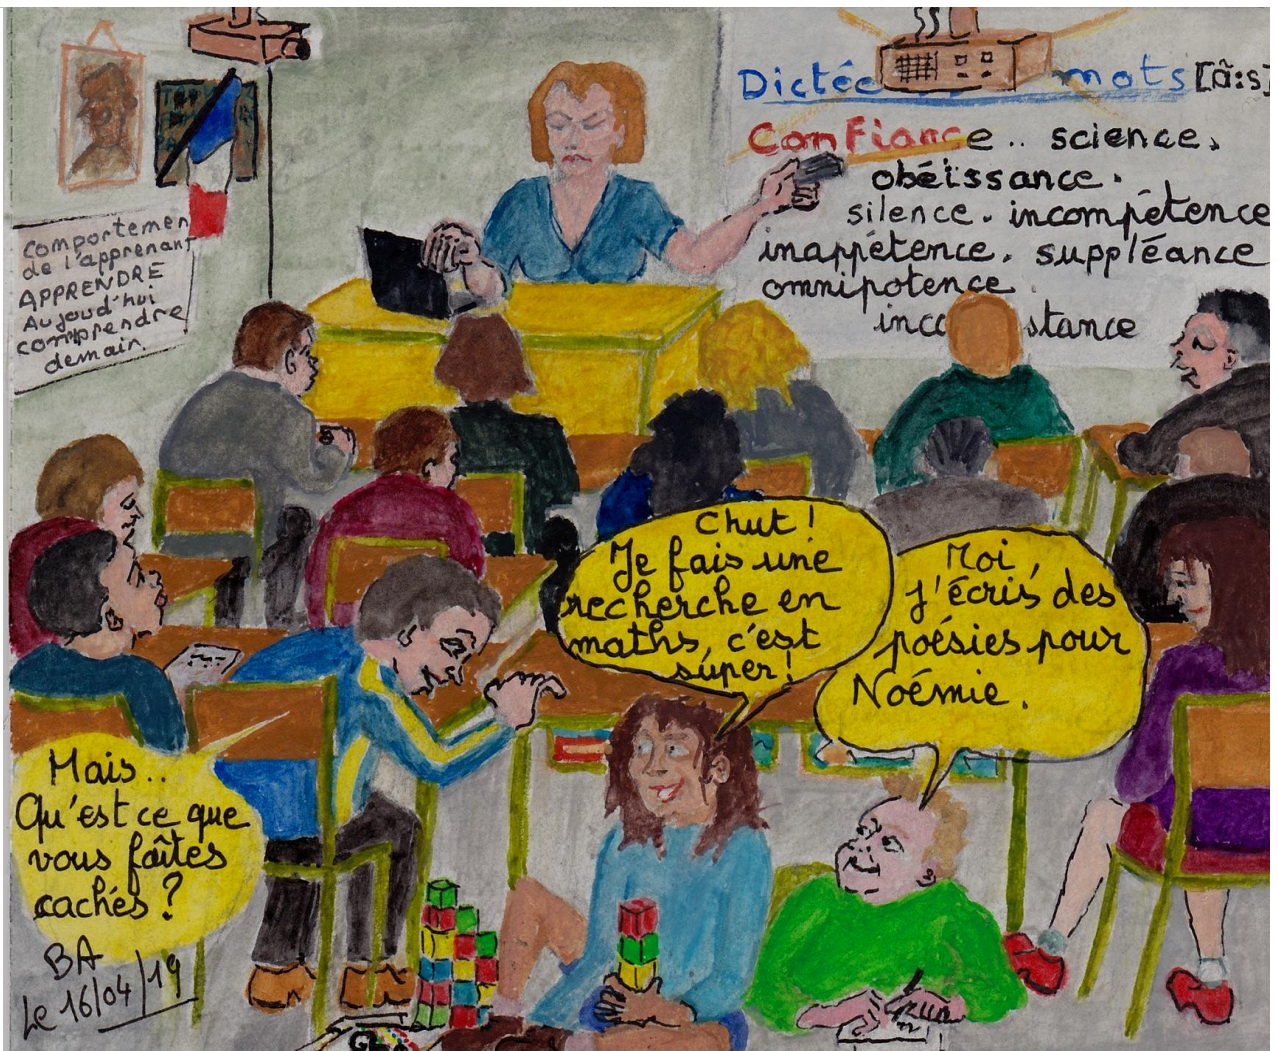 Dictée mots [ɑ̃:s]
Confiance.. science.
obéïssance.
silence. incompétence
inappétence. suppléance
omnipotence.
inco stance
Comportemen
de l'apprenant
APPRENDRE
Aujoud'hui
comprendre
demain.
Chut !
Je fais une
recherche en
maths, c'est
super !
Moi,
j'écris des
poésies pour
Noémie.
Mais..
Qu'est ce que
vous faîtes
cachés ?
BA
Le 16/04/19